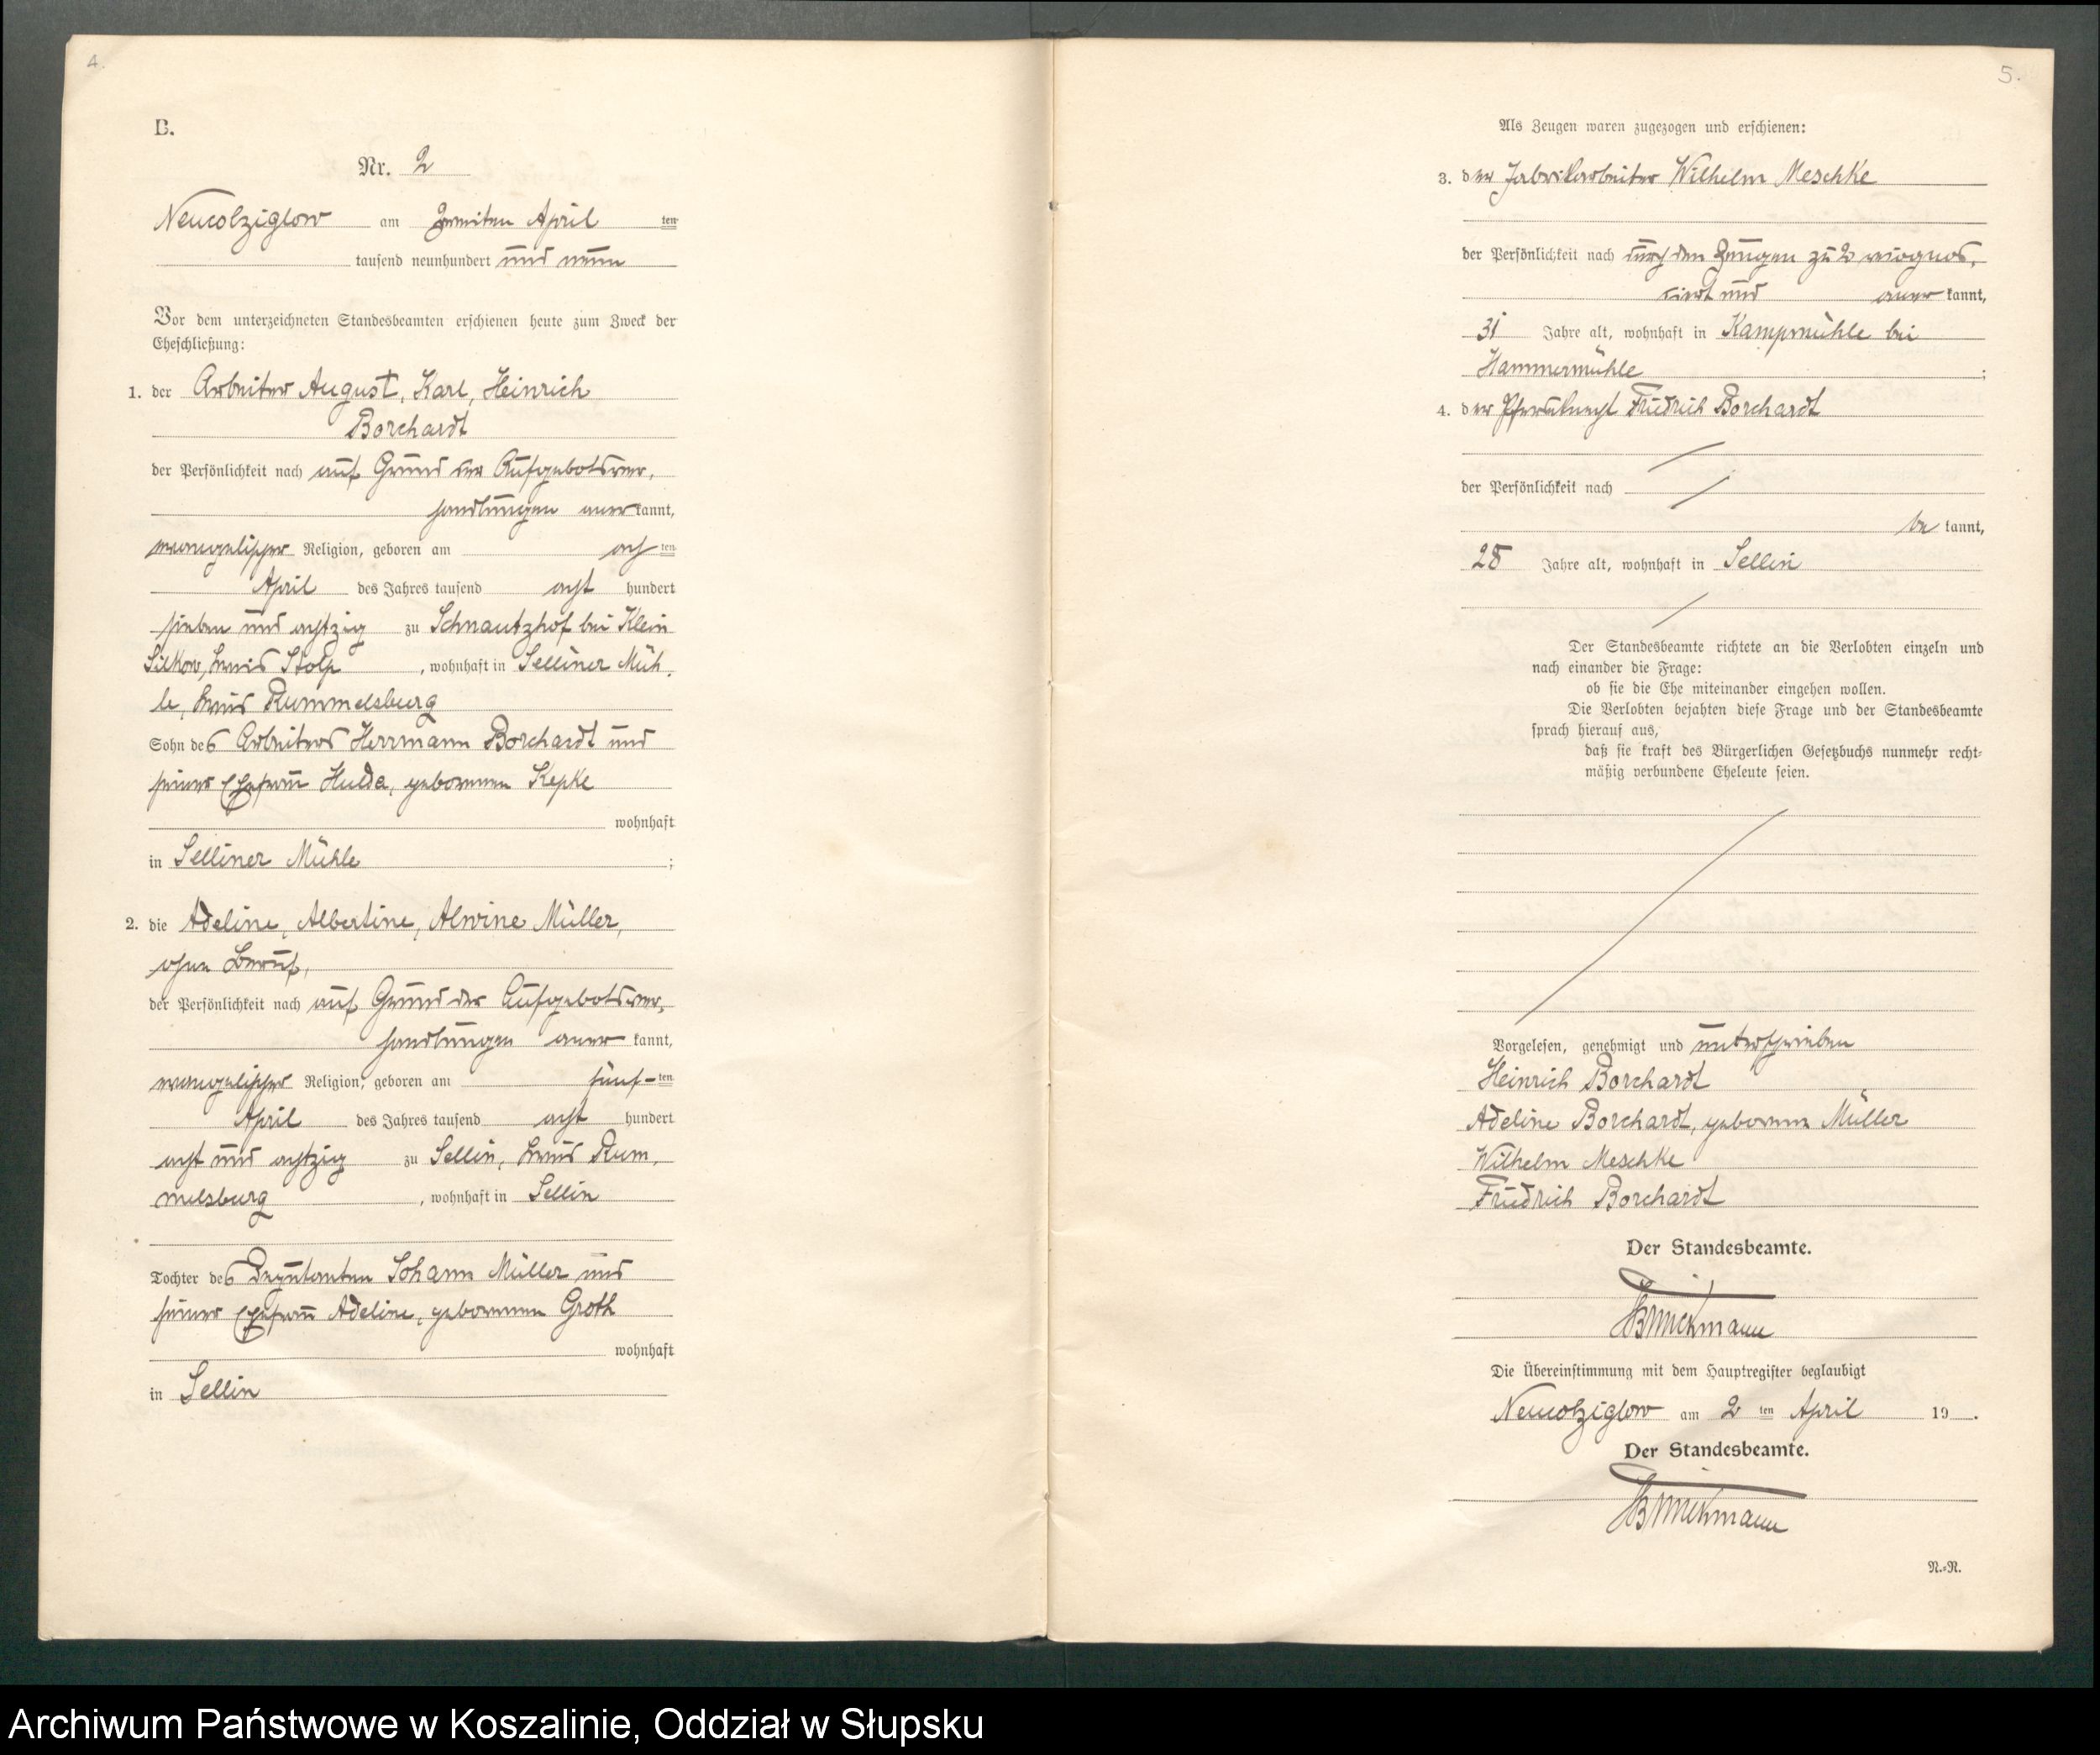 4.
B.
Nr. 2
Neucolziglow am zweiten April ten
tausend neunhundert und neun
Vor dem unterzeichneten Standesbeamten erschienen heute zum Zweck der
Eheschließung:
1. der Arbeiter August, Karl, Heinrich
Borchardt
der Persönlichkeit nach auf Grund der Aufgebotsver,
handlungen anerkannt,
evangelischer Religion, geboren am ach ten
April des Jahres tausend acht hundert
sieben und achtzig zu Schnautzhof bei Klein
Silkow, Kreis Stolp, wohnhaft in Selliner Müh,
le, Kreis Rummelsburg
Sohn des Arbeiters Herrmann Borchardt und
seiner Ehefrau Hulda, geborenen Kepke
wohnhaft
in Selliner Mühle ;
2. die Adeline, Albertine, Alwine Müller,
ohne Beruf,
der Persönlichkeit nach auf Grund der Aufgebotsver,
handlungen aner kannt,
evangelischer Religion, geboren am fünf-ten
April des Jahres tausend acht hundert
acht und achtzig zu Sellin, Kreis Rum,
melsburg, wohnhaft in Sellin
Tochter des Deputanten Johann Müller und
seiner Ehefrau Adeline, geborenen Groth
wohnhaft
in Sellin
5.
Als Zeugen waren zugezogen und erschienen:
3. der Fabrikarbeiter Wilhelm Meschke
der Persönlichkeit nach durch den Zeugen zu 2 recognos,
ciert und aner kannt,
31 Jahre alt, wohnhaft in Kampmühle bei
Hammermühle ;
4. der Pferdeknecht Friedrich Borchardt
der Persönlichkeit nach
be kannt,
28 Jahre alt, wohnhaft in Sellin
Der Standesbeamte richtete an die Verlobten einzeln und
nach einander die Frage:
ob sie die Ehe miteinander eingehen wollen.
Die Verlobten bejahten diese Frage und der Standesbeamte
sprach hierauf aus,
daß sie kraft des Bürgerlichen Gesetzbuchs nunmehr recht-
mäßig verbundene Eheleute seien.
Vorgelesen, genehmigt und unterschrieben
Heinrich Borchardt
Adeline Borchardt, geborene Müller
Wilhelm Meschke
Friedrich Borchardt
Der Standesbeamte.
Brinckmann
Die Übereinstimmung mit dem Hauptregister beglaubigt
Neucolziglow am 2 ten April 19 .
Der Standesbeamte.
Brinckmann
N.-N.
Archiwum Państwowe w Koszalinie, Oddział w Słupsku